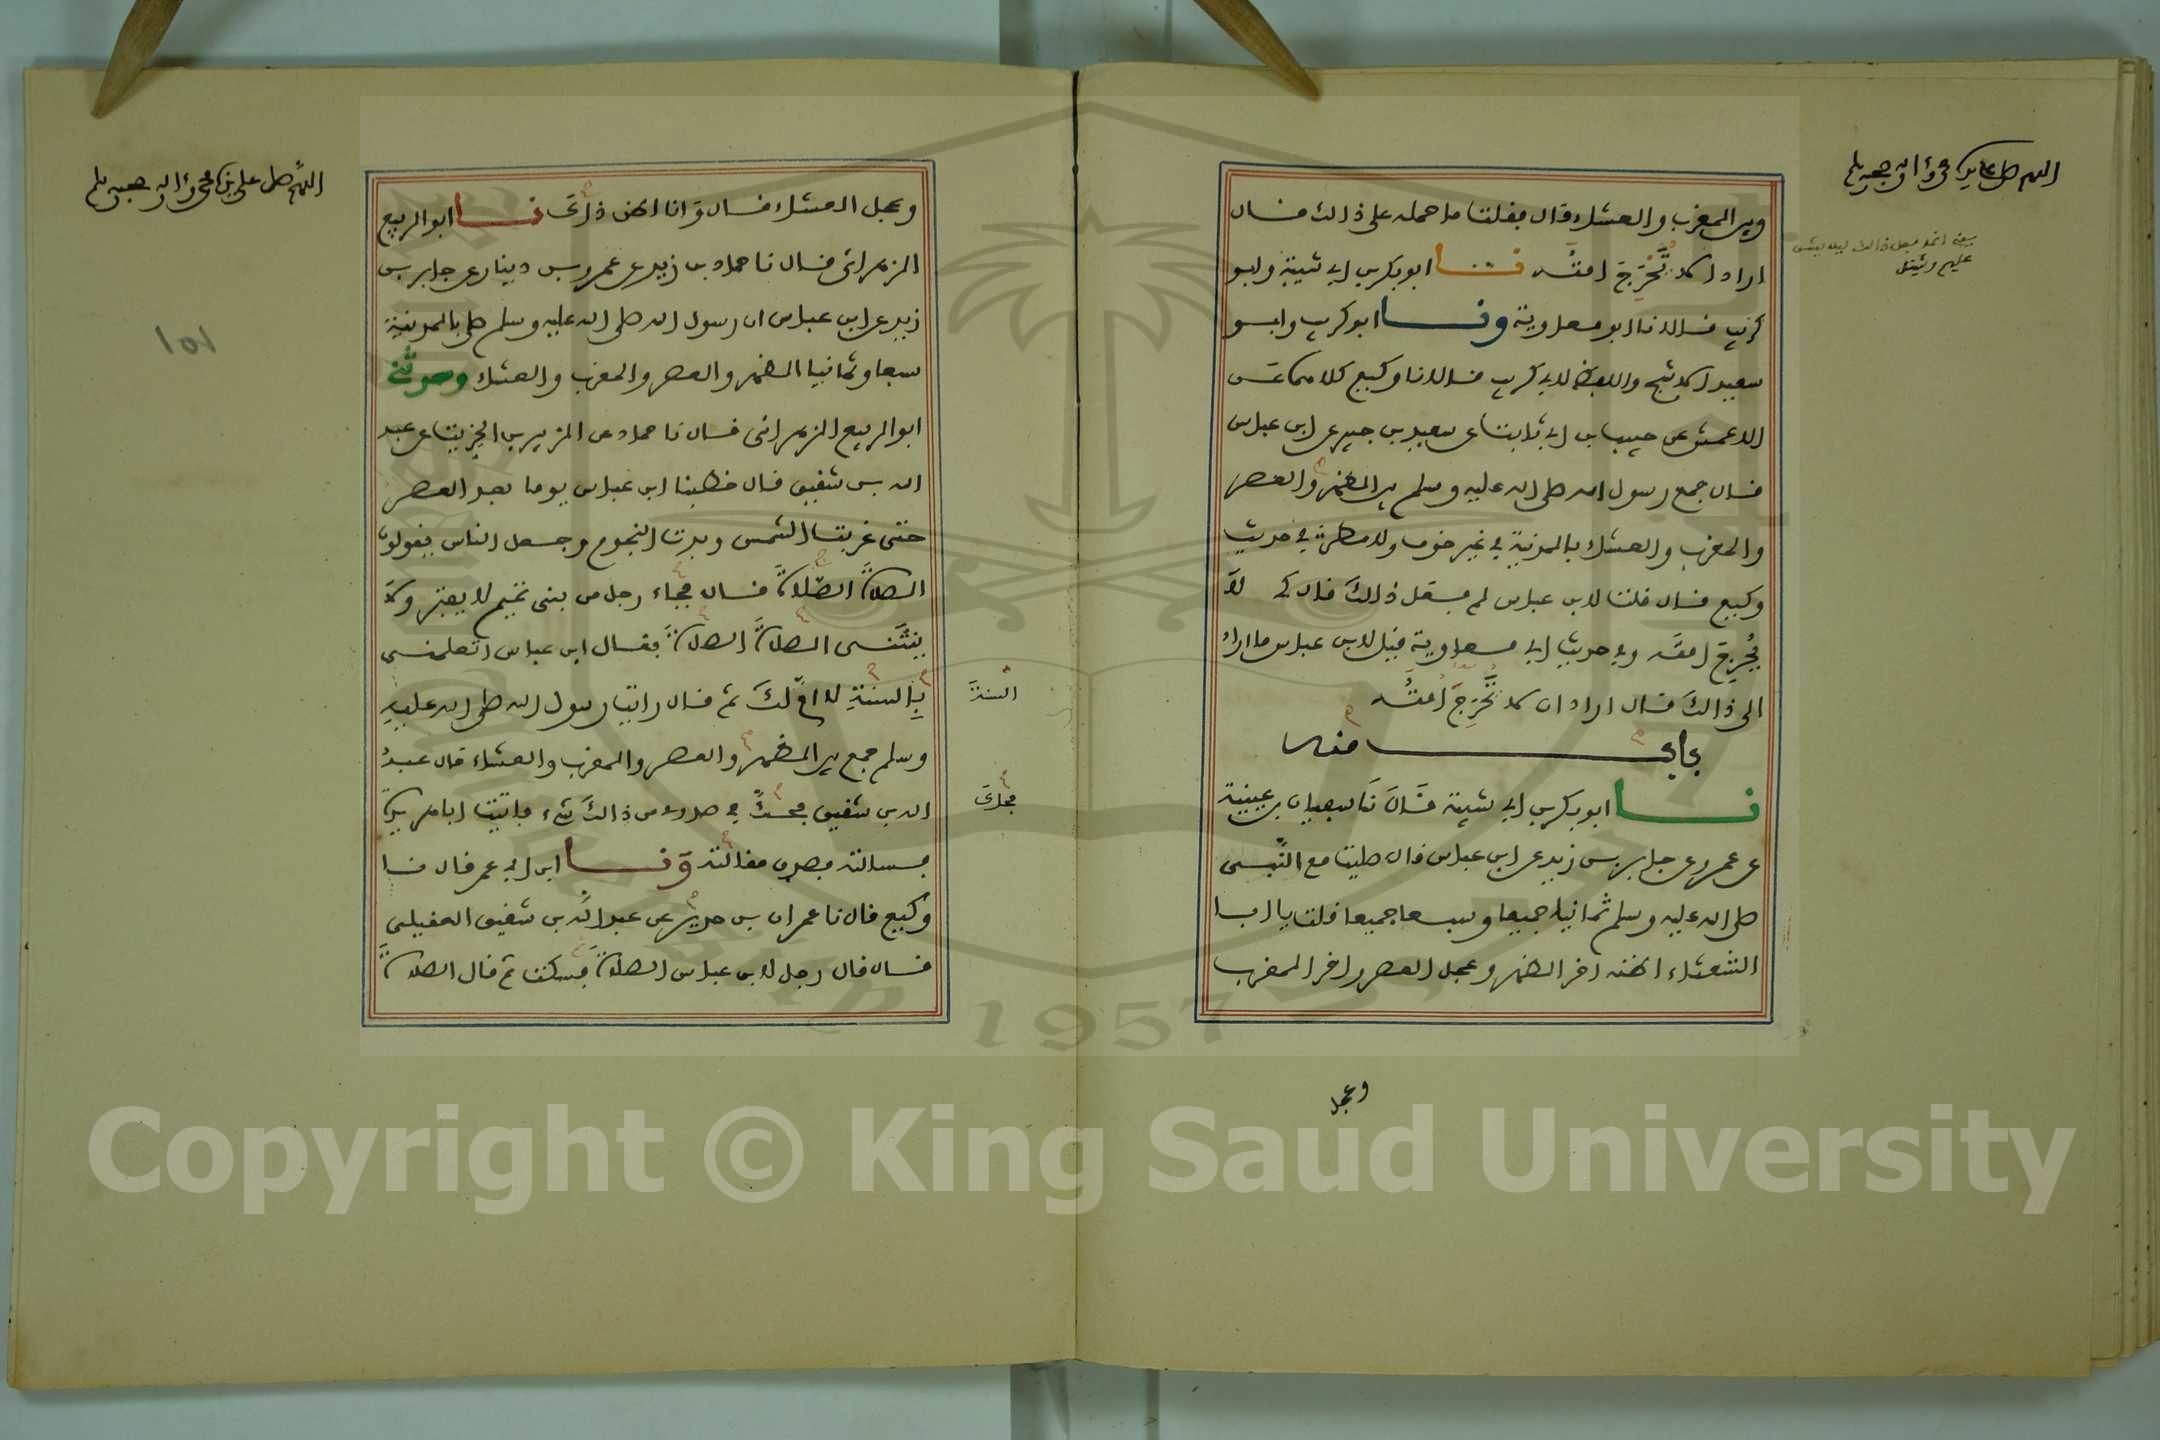 اللهم صل على سيدنا محمد وءاله وصحبه وسلم
وبين المغرب والعشاء قال فقلت ما حمله على ذالك فال
اراد ان لا تحرج امته نا ابو بكر بن ابي شيبة وابو
كريب فالا نا ابو معاوية ونا ابو كريب وابو
سعيد الاشج واللفظ لابي كريب فالا نا وكيع كلاهما عن
الاعمش عن حبيب بن ابي ثابت عن سعيد بن جبير عن ابن عباس
فال جمع رسول الله صلى الله عليه وسلم بين الظهر والعصر
والمغرب والعشاء بالمدينة في غير خوف ولا مطر في حديث
وكيع فال قلت لابن عباس لم فعل ذالك قال كي لا
يحرج امته وفي حديث ابي معاوية فيل لابن عباس ما اراد
الى ذالك فال اراد ان لا تحرج امته
باب منه
نا ابو بكر بن ابي شيبة قال نا سفيان بن عيينة
عن عمرو عن جابر بن زيد عن ابن عباس قال صليت مع النبي
صلى الله عليه وسلم ثمانيا جميعا وسبعا جميعا فلت يا ابا
الشعثاء اظنه اخر الظهر وعجل العصر واخر المغرب
وعجل
اللهم صل على سيدنا محمد وءاله وصحبه وسلم
١٥١
وعجل العشاء فال وانا اظن ذاك نا ابو الربيع
الزهراني فال نا حماد بن زيد عن عمرو بن دينار عن جابر بن
زيد عن ابن عباس ان رسول الله صلى الله عليه وسلم صلى بالمدينة
سبعا وثمانيا الظهر والعصر والمغرب والعشاء وحدثني
ابو الربيع الزهراني فال نا حماد عن الزبير بن الخريت عن عبد
الله بن شفيق فال خطبنا ابن عباس يوما بعد العصر
حتى غربت الشمس وبدت النجوم وجعل الناس يفولون
الصلاة الصلاة فال فجاء رجل من بني تميم لا يفتر ولا
ينثني الصلاة الصلاة فقال ابن عباس اتعلمني
بالسنة لا ام لك ثم فال رايت رسول الله صلى الله عليه
السنة
وسلم جمع بين الظهر والعصر والمغرب والعشاء قال عبد
الله بن شفيق فحك في صدري من ذالك شيء فاتيت ابا هريرة
فسالته فصدق مقالته ونا ابن ابي عمر فال نا
وكيع فال نا عمران بن حدير عن عبد الله بن شفيق العقيلي
فال فال رجل لابن عباس الصلاة فسكت ثم فال الصلاة
Copyright © King Saud University
1957